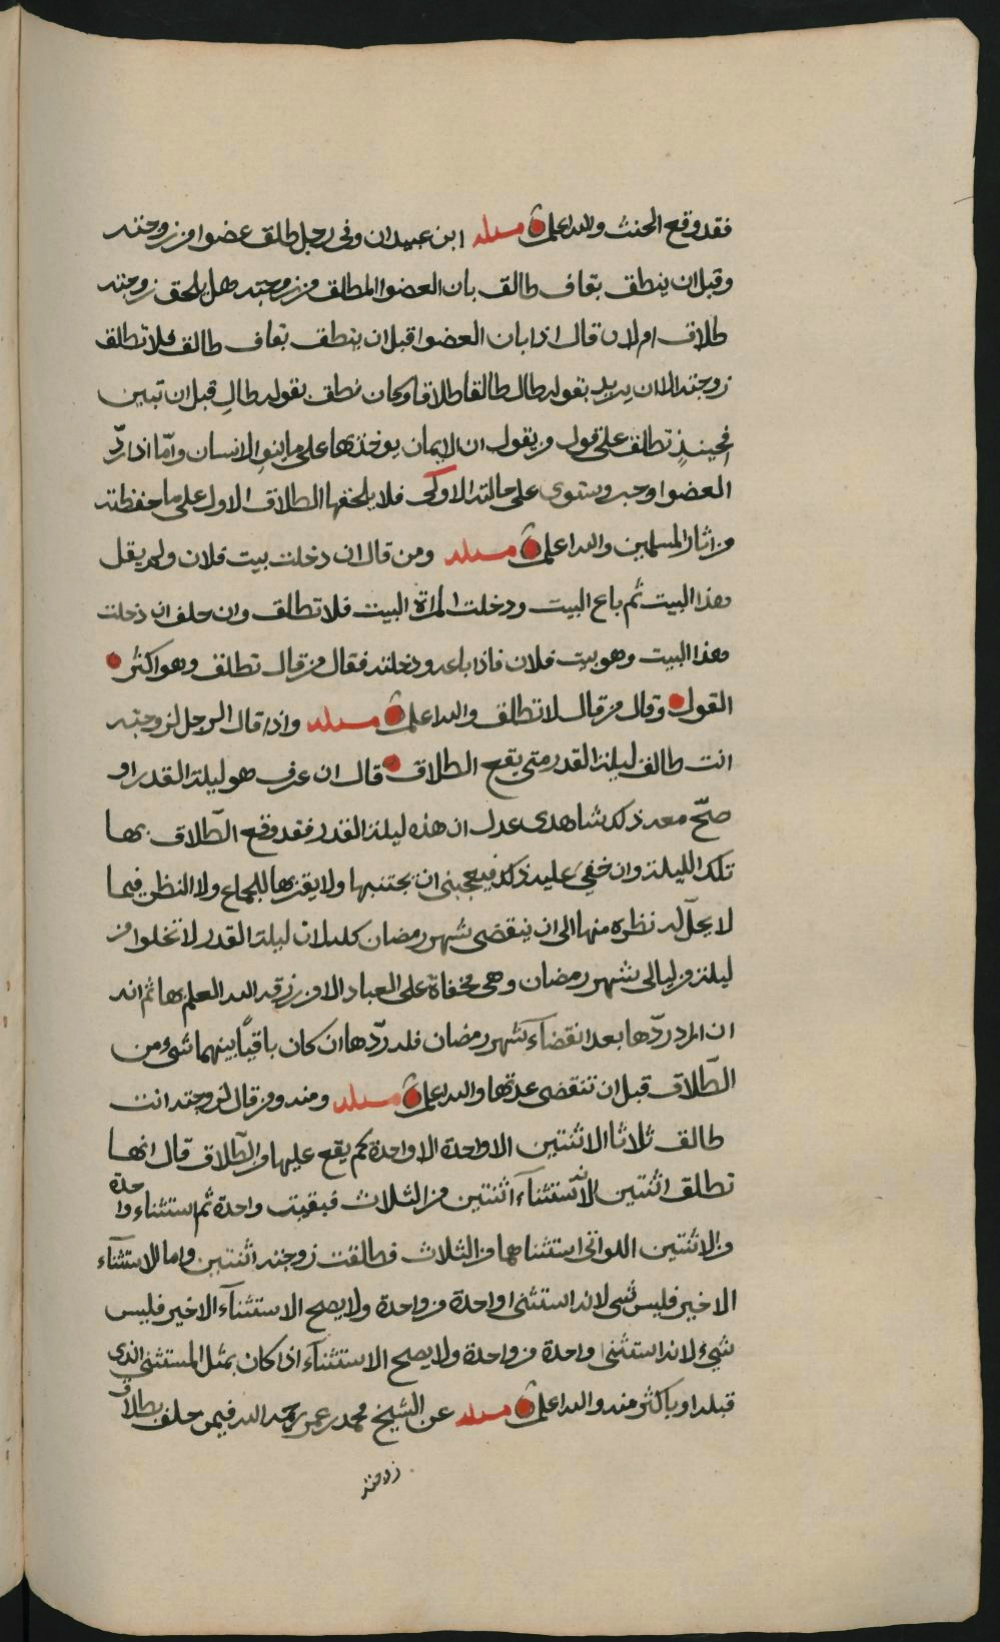 فقد وقع الحنث والله اعلم مسلة ابن عبيدان وفى رجل طلق عضوا من زوجته
وقبل ان ينطق بقاف طالق بان العضوا المطلق من زوجته هل يلحق زوجته
طلاق ام لا قال اذا بان العضوا قبل ان ينطق بقاف طالق فلا تطلق
زوجته الا ان يريد بقوله طال طالقا طلاقا وكان نطق بقوله طال قبل ان تبين
فحينئذ تطلق على قول من يقول ان الايمان يوخذ بها على ما ينو الانسان وامّا اذا ردّ
العضوا وجبر وستوى على حالته الاوكى فلا يلحقها الطلاق الاول على ما حفظته
من اثار المسلمين والله اعلم مسلة ومن قال ان دخلت بيت فلان ولم يقل
هذا البيت ثم باع البيت ودخلت المراة البيت فلا تطلق وان حلف ان دخلت
هذا البيت وهو بيت فلان فاذا باعه ودخلته فقال من قال تطلق وهو اكثر
القول وقال من قال لا تطلق والله اعلم مسلة واذا قال الرجل لزوجته
انت طالق ليلة القدر متى يقع الطلاق قال ان عرف هو ليلة القدر او
صحّ معه ذلك شاهدى عدل ان هذه ليلة القدر فقد وقع الطّلاق بها
تلك الليلة وان خفي عليه ذلك فيعجبنى ان يجتنبها ولا يقربها للجماع ولا النظر فيما
لا يحلّ له نظره منها الى ان ينقضى شهر رمضان كله لان ليلة القدر لا تخلوا من
ليلة من ليالى شهر رمضان وهى مخفاة على العباد الا من رزقه الله العلم بها ثم انه
ان اراد ردّها بعد انقضاء شهر رمضان فله ردّها ان كان باقيًا بينهما شىء من
الطّلاق قبل ان تنقضى عدتها والله اعلم مسلة ومنه ومن قال لزوجته انت
طالق ثلاثا الا اثنتين الا واحدة الا واحدة كم يقع عليها من الطّلاق قال انها
تطلق اثنتين لانّه استثناء اثنتين من الثلاث فبقيت واحدة ثم استثناء واحدة
من الاثنتين اللواتى استثناهما من الثلاث فطلقت زوجته اثنتين واما الاستثناء
الاخير فليس شى لانه استثنى واحدة من واحدة ولا يصح الاستثناء الاخير فليس
شيء لانه استثنى واحدة من واحدة ولا يصح الاستثناء اذا كان بمثل المستثنى الذى
قبله او باكثر منه والله اعلم مسلة عن الشيخ محمد بن عمر رحمه الله فيمن حلف بطلاق
زوجته